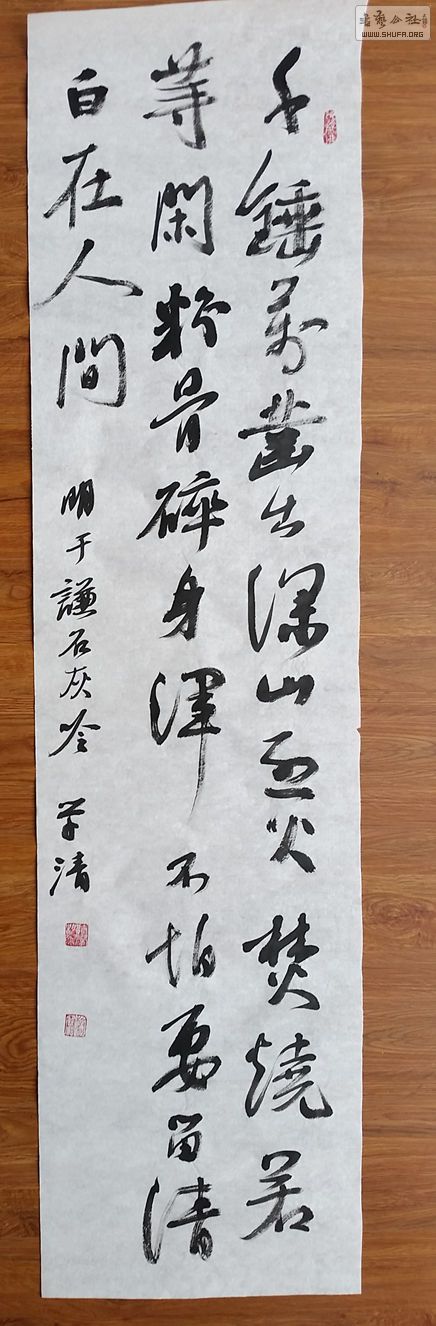 千錘萬鑿出深山烈火焚燒若
等閑粉骨碎身渾不怕要留清
白在人間
明于謙石灰吟 學清
書法公社
WWW.SHUFA.ORG